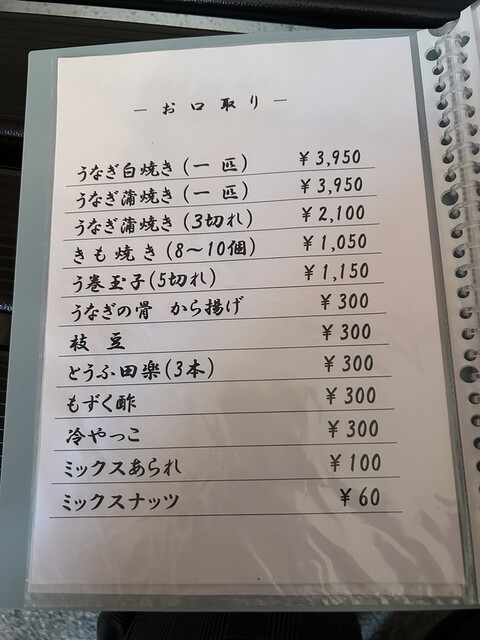 — お口取り —
うなぎ白焼き(一匹) ¥3,950
うなぎ蒲焼き(一匹) ¥3,950
うなぎ蒲焼き(3切れ) ¥2,100
きも焼き(8〜10個) ¥1,050
う巻玉子(5切れ) ¥1,150
うなぎの骨 から揚げ ¥300
枝豆 ¥300
とうふ田楽(3本) ¥300
もずく酢 ¥300
冷やっこ ¥300
ミックスあられ ¥100
ミックスナッツ ¥60